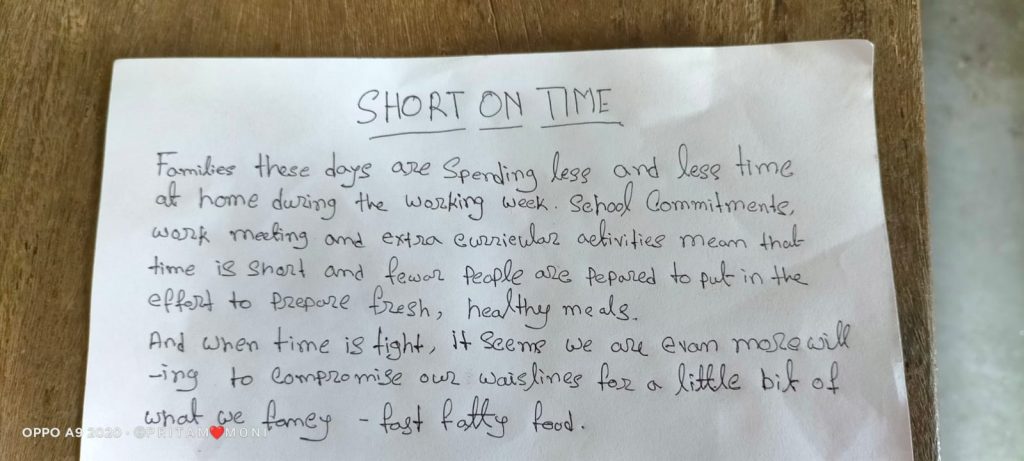 SHORT ON TIME
Families these days are Spending less and less time
at home during the working week. School Commitments,
work meeting and extra curricular activities mean that
time is short and fewar people are pepared to put in the
effort to prepare fresh, healthy meals.
And when time is tight, it seems we are evan more will
-ing to compromise our waislines for a little bit of
what we fancy - fast fatty food.
OPPO A9 2020 · ©PRITAM❤MONI